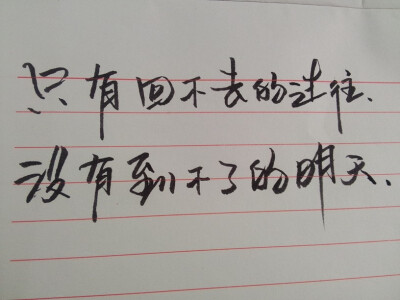 只有回不去的过往、
没有到不了的明天、